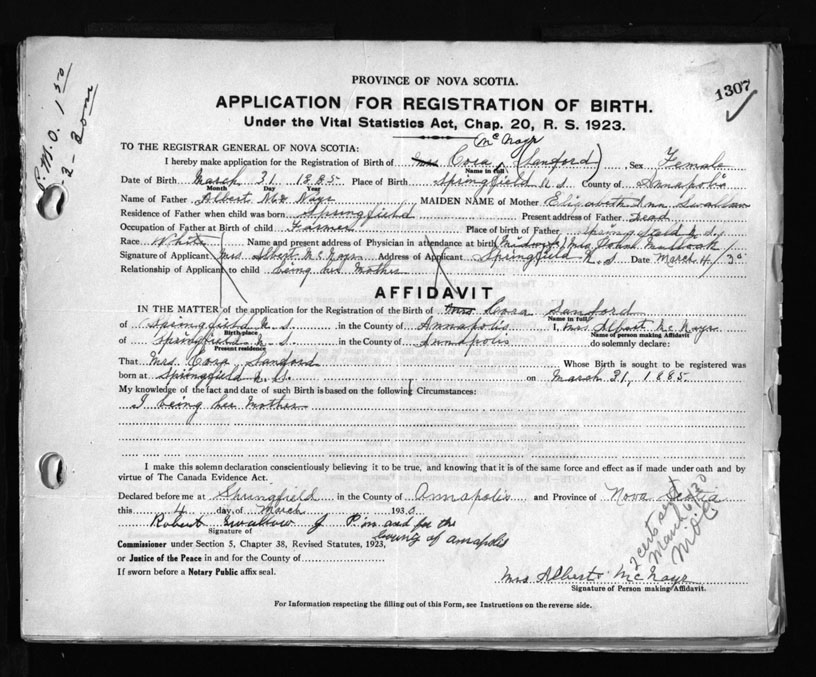 P.M.O. 1 50
PROVINCE OF NOVA SCOTIA.
1307
APPLICATION FOR REGISTRATION OF BIRTH.
Under the Vital Statistics Act, Chap. 20, R. S. 1923.
Mc Nayr
TO THE REGISTRAR GENERAL OF NOVA SCOTIA:
I hereby make application for the Registration of Birth of Mrs Cora (Sanford) Sex Female
Name in full
Date of Birth March 31 1885 Place of Birth Springfield N.S County of Annapolis
Month Day Year
Name of Father Albert Mc Nayr MAIDEN NAME of Mother Elizabeth Ann Swallow
Residence of Father when child was born Springfield Present address of Father Dead
Occupation of Father at Birth of child Farmer Place of birth of Father Springfield N.S.
Race White Name and present address of Physician in attendance at birth Midwife Mrs John
Signature of Applicant Mrs Albert McNayr Address of Applicant Springfield N.S Date March 4/30
Relationship of Applicant to child being her Mother
AFFIDAVIT
IN THE MATTER of the application for the Registration of the Birth of Mrs Coora Sanford
Name in full
of Springfield N.S. in the County of Annapolis I, Mrs Albert McNayr
Birth place Name of person making Affidavit
of Springfield N.S. in the County of Annapolis do solemnly declare:
Present residence
That Mrs. Cora Sanford Whose Birth is sought to be registered was
born at Springfield N.S. on March 31, 1885
My knowledge of the fact and date of such Birth is based on the following Circumstances:
I being her Mother
I make this solemn declaration conscientiously believing it to be true, and knowing that it is of the same force and effect as if made under oath and by
virtue of The Canada Evidence Act.
Declared before me at Springfield in the County of Annapolis and Province of Nova Scotia
this 4 day of March 1930
Robert Swallow J P in and for the
Signature of County of Annapolis
Commissioner under Section 5, Chapter 38, Revised Statutes, 1923,
or Justice of the Peace in and for the County of
If sworn before a Notary Public affix seal.
cert sent
March 6/30
Mrs Albert McNayr
Signature of Person making Affidavit.
For Information respecting the filling out of this Form, see Instructions on the reverse side.